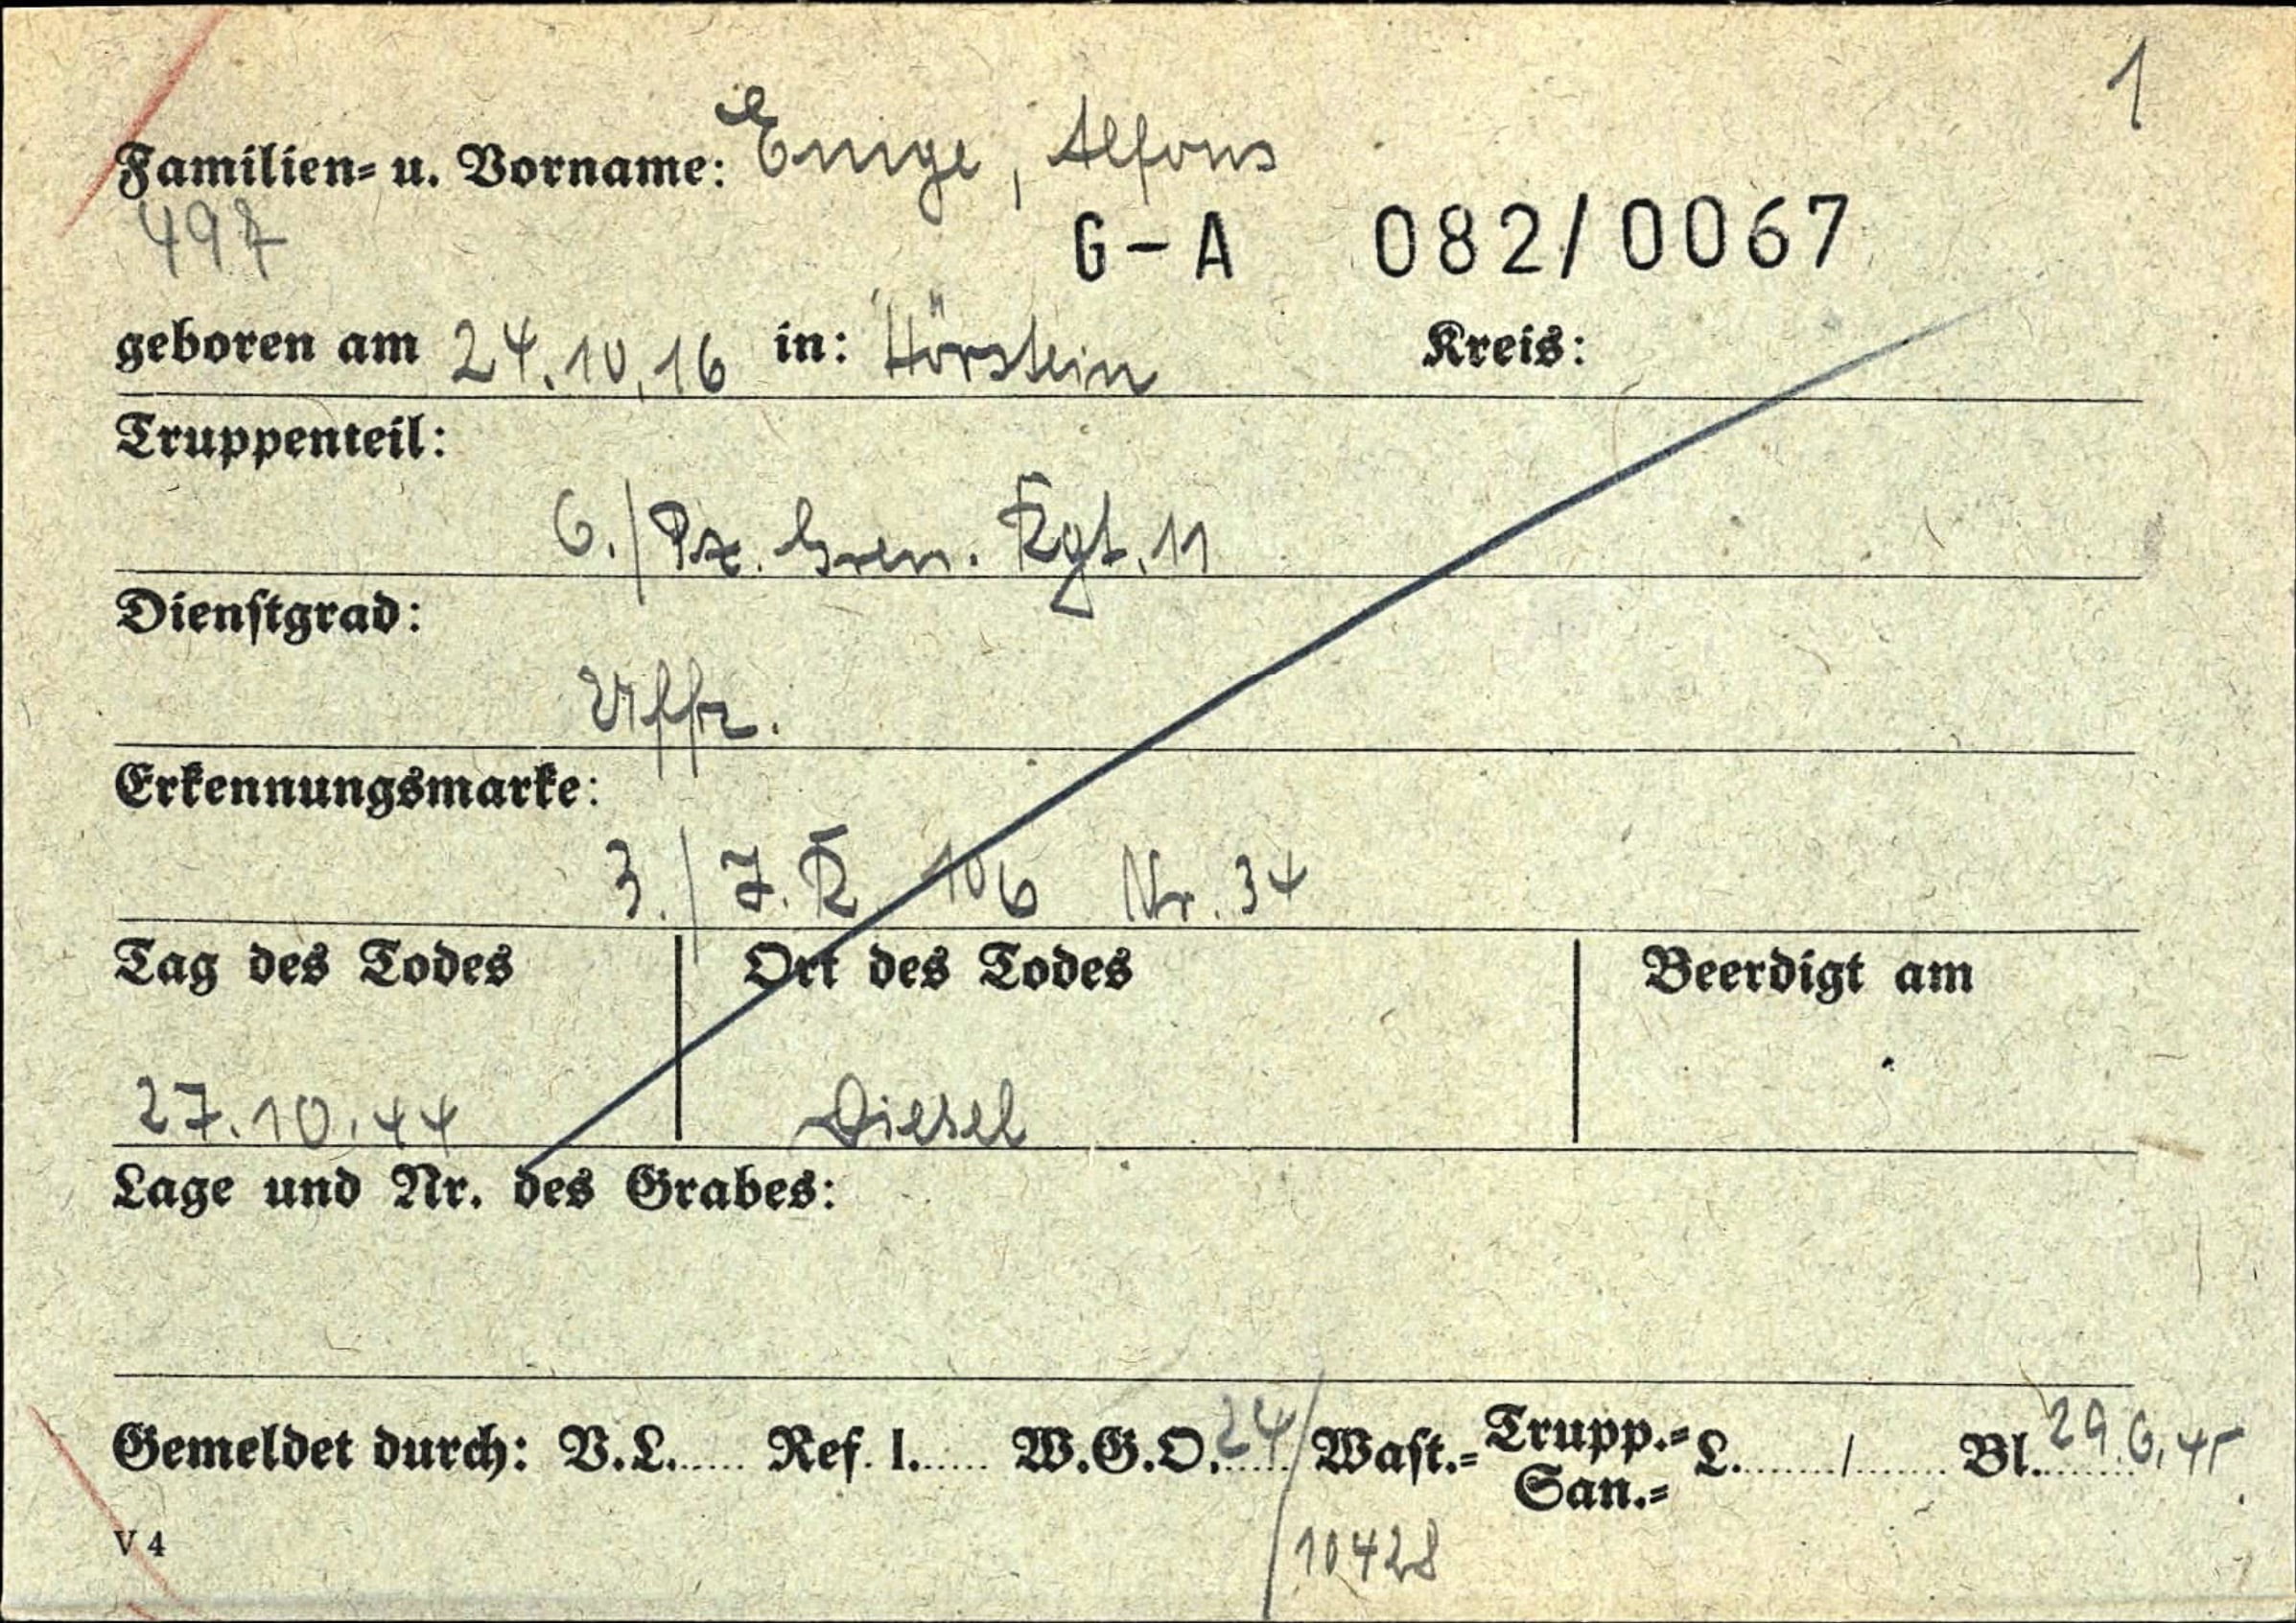 1
Familien- u. Vorname: Emge, Alfons
497
G-A 082/0067
geboren am 24.10.16 in: Hörstein Kreis:
Truppenteil:
6./Pz. Gren. Rgt. 11
Dienstgrad:
Uffz.
Erkennungsmarke:
3./ J.R 106 Nr. 34
Tag des Todes Ort des Todes Beerdigt am
27.10.44 Diesel
Lage und Nr. des Grabes:
Gemeldet durch: V.L...... Ref. I...... W.G.O. 24/ Wast.- Trupp.- San.- L......../........ Bl. 29.6.45
10428
V 4